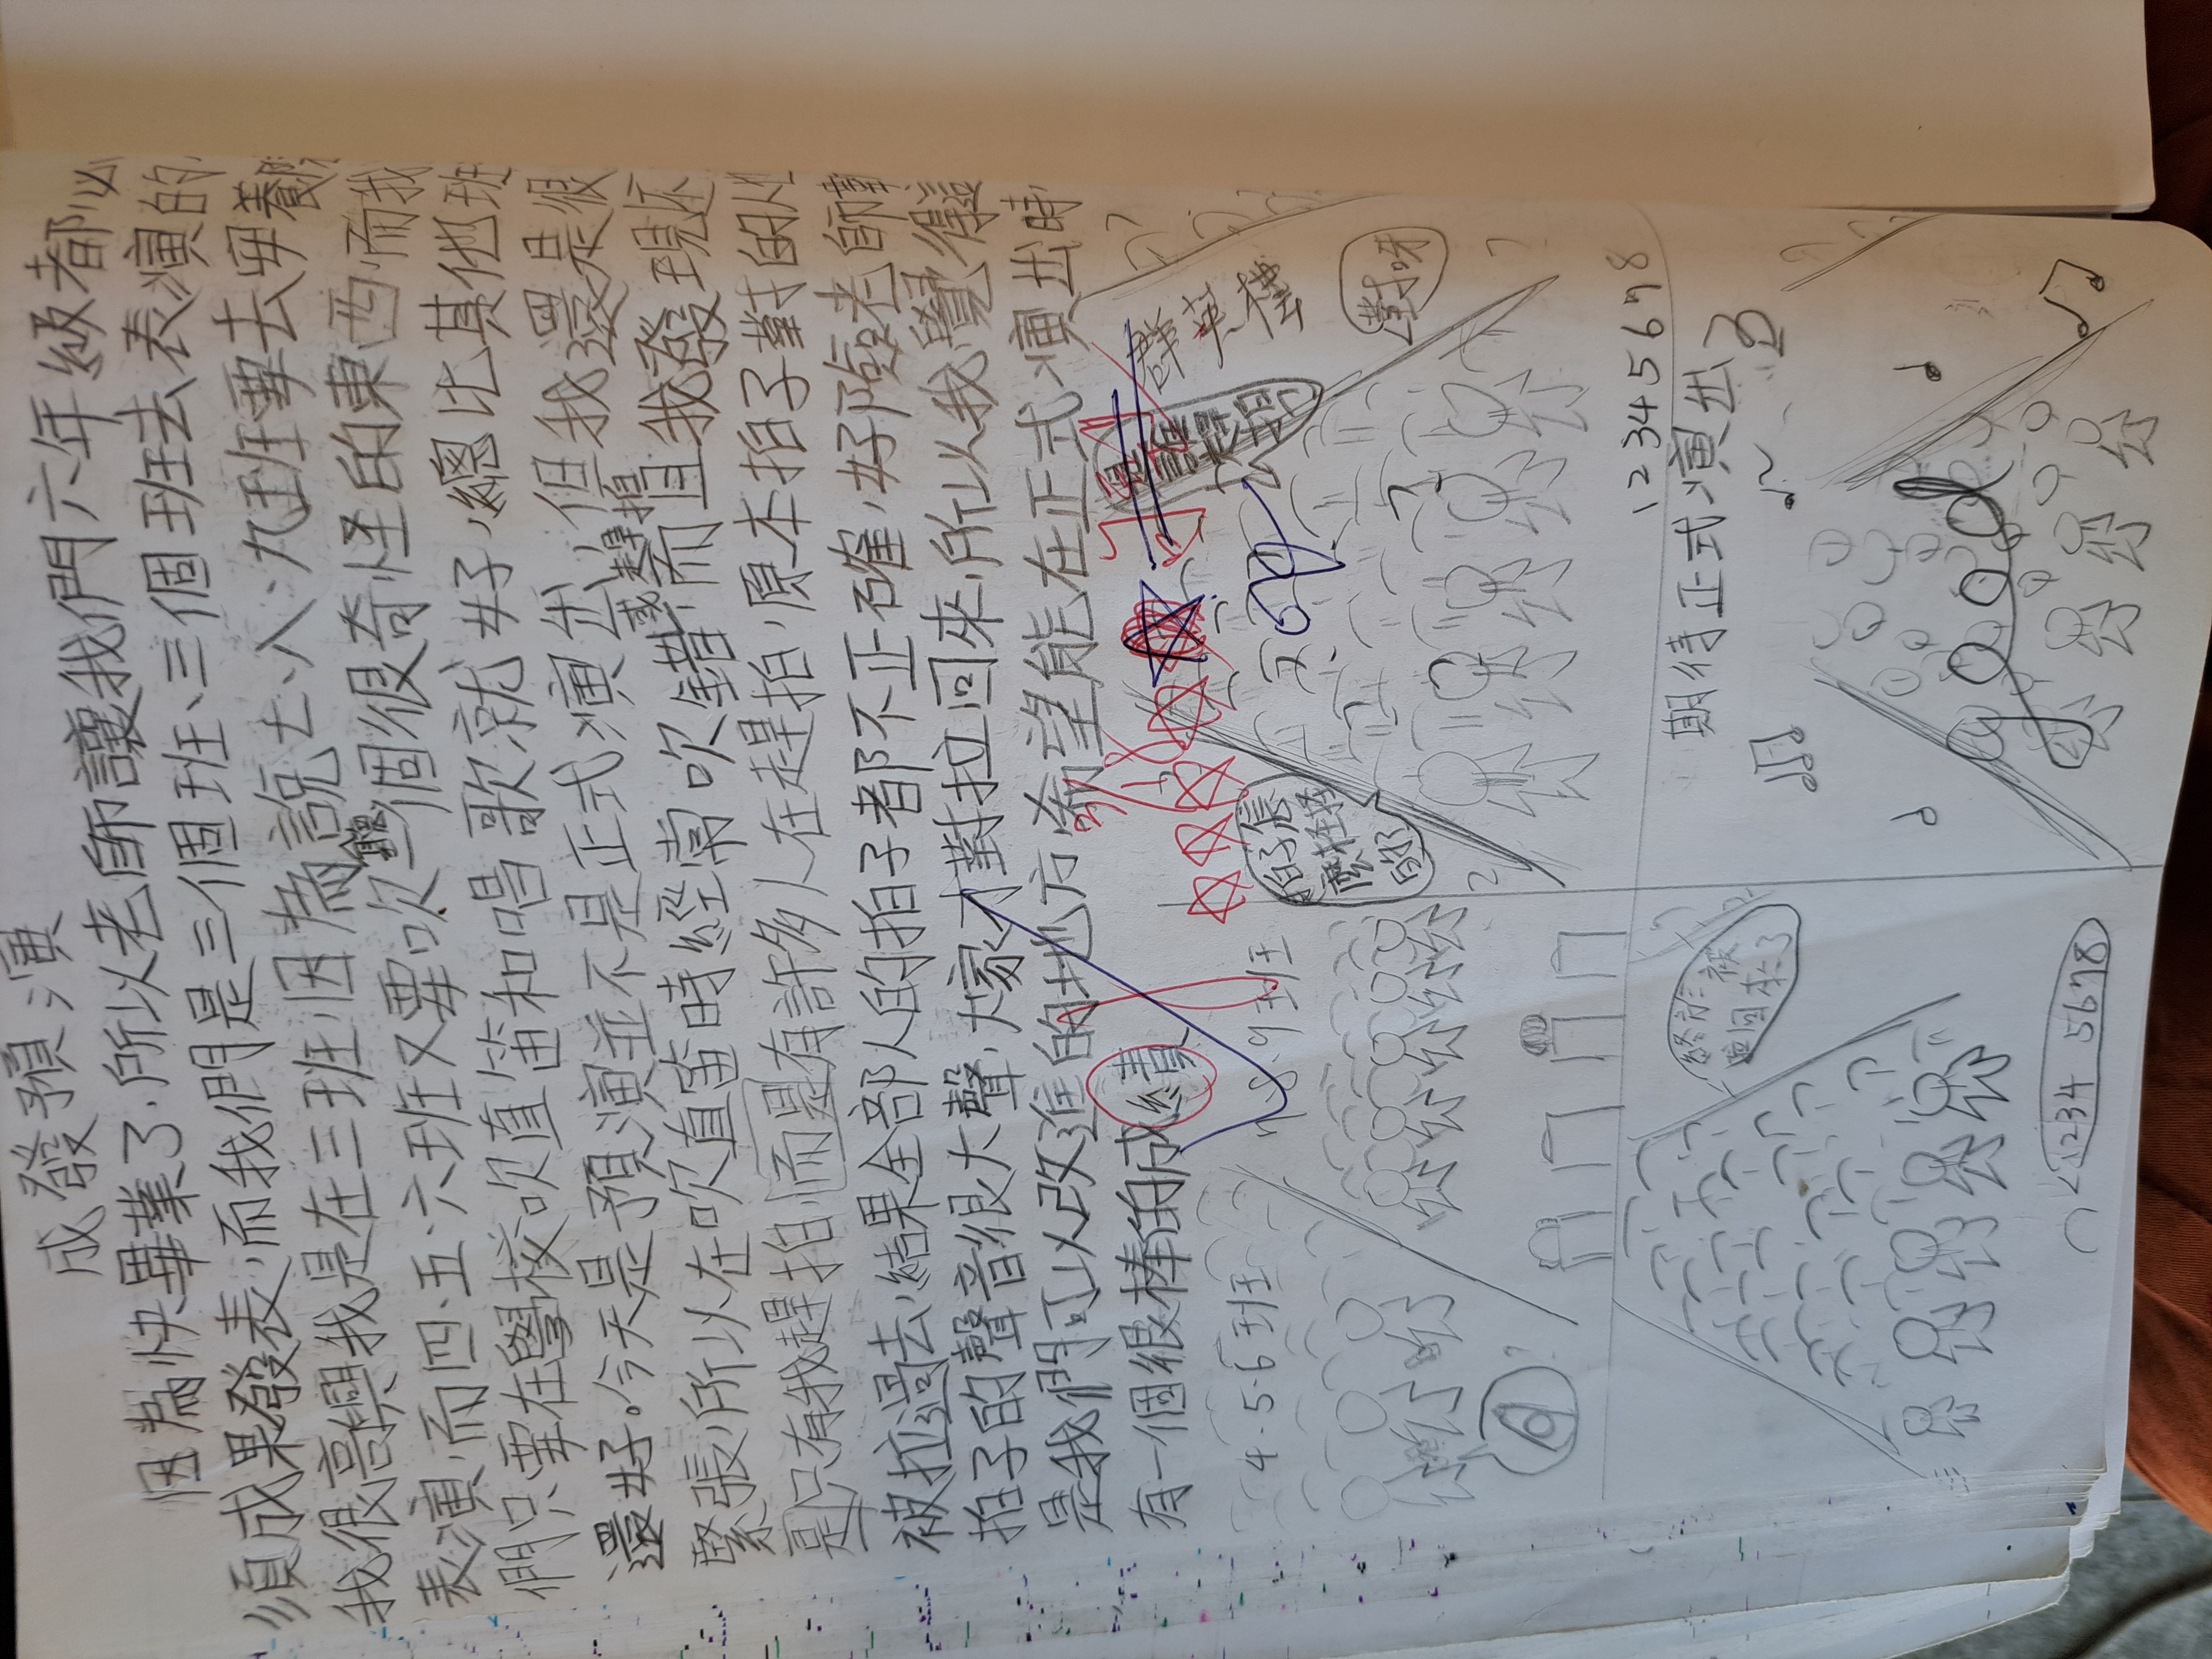 成發預演
因為快畢業了,所以老師讓我們六年級都必
須成果發表,而我們是三個班、三個班去表演的
我很高興我是在三班,因為說七、八、九班要去
表演,而四、五、六班又要吹一個很奇怪的東西,而我
們只要在學校吹直笛和唱歌就好,總比其他班
還好。今天是預演並不是正式演出,但我還是很
緊張,所以在吹直笛時經常吹錯,而且我發現還
或趕拍
是只有我趕拍,而是有許多人在趕拍,原本拍子對的人
被拉過去,結果全部人的拍子都不正確,好險老師
拍子的聲音很大聲,大家才對拉回來,所以我覺得這
是我們可以改進的地方,希望能在正式演出時
有一個很棒的成績
群英樓
對呀
拍子怎麼怪怪的
4.5.6班
7.8.9班
12345678
終於被拉回來了
1234 5678
期待正式演出